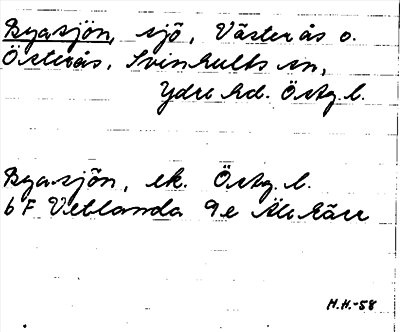 Byasjön, sjö, Västerås o.
Österås, Svinhults sn,
Ydre hd. Östg. l.
Byasjön, ek. Östg. l.
6 F Vetlanda 9e Älekärr
H.H.-58